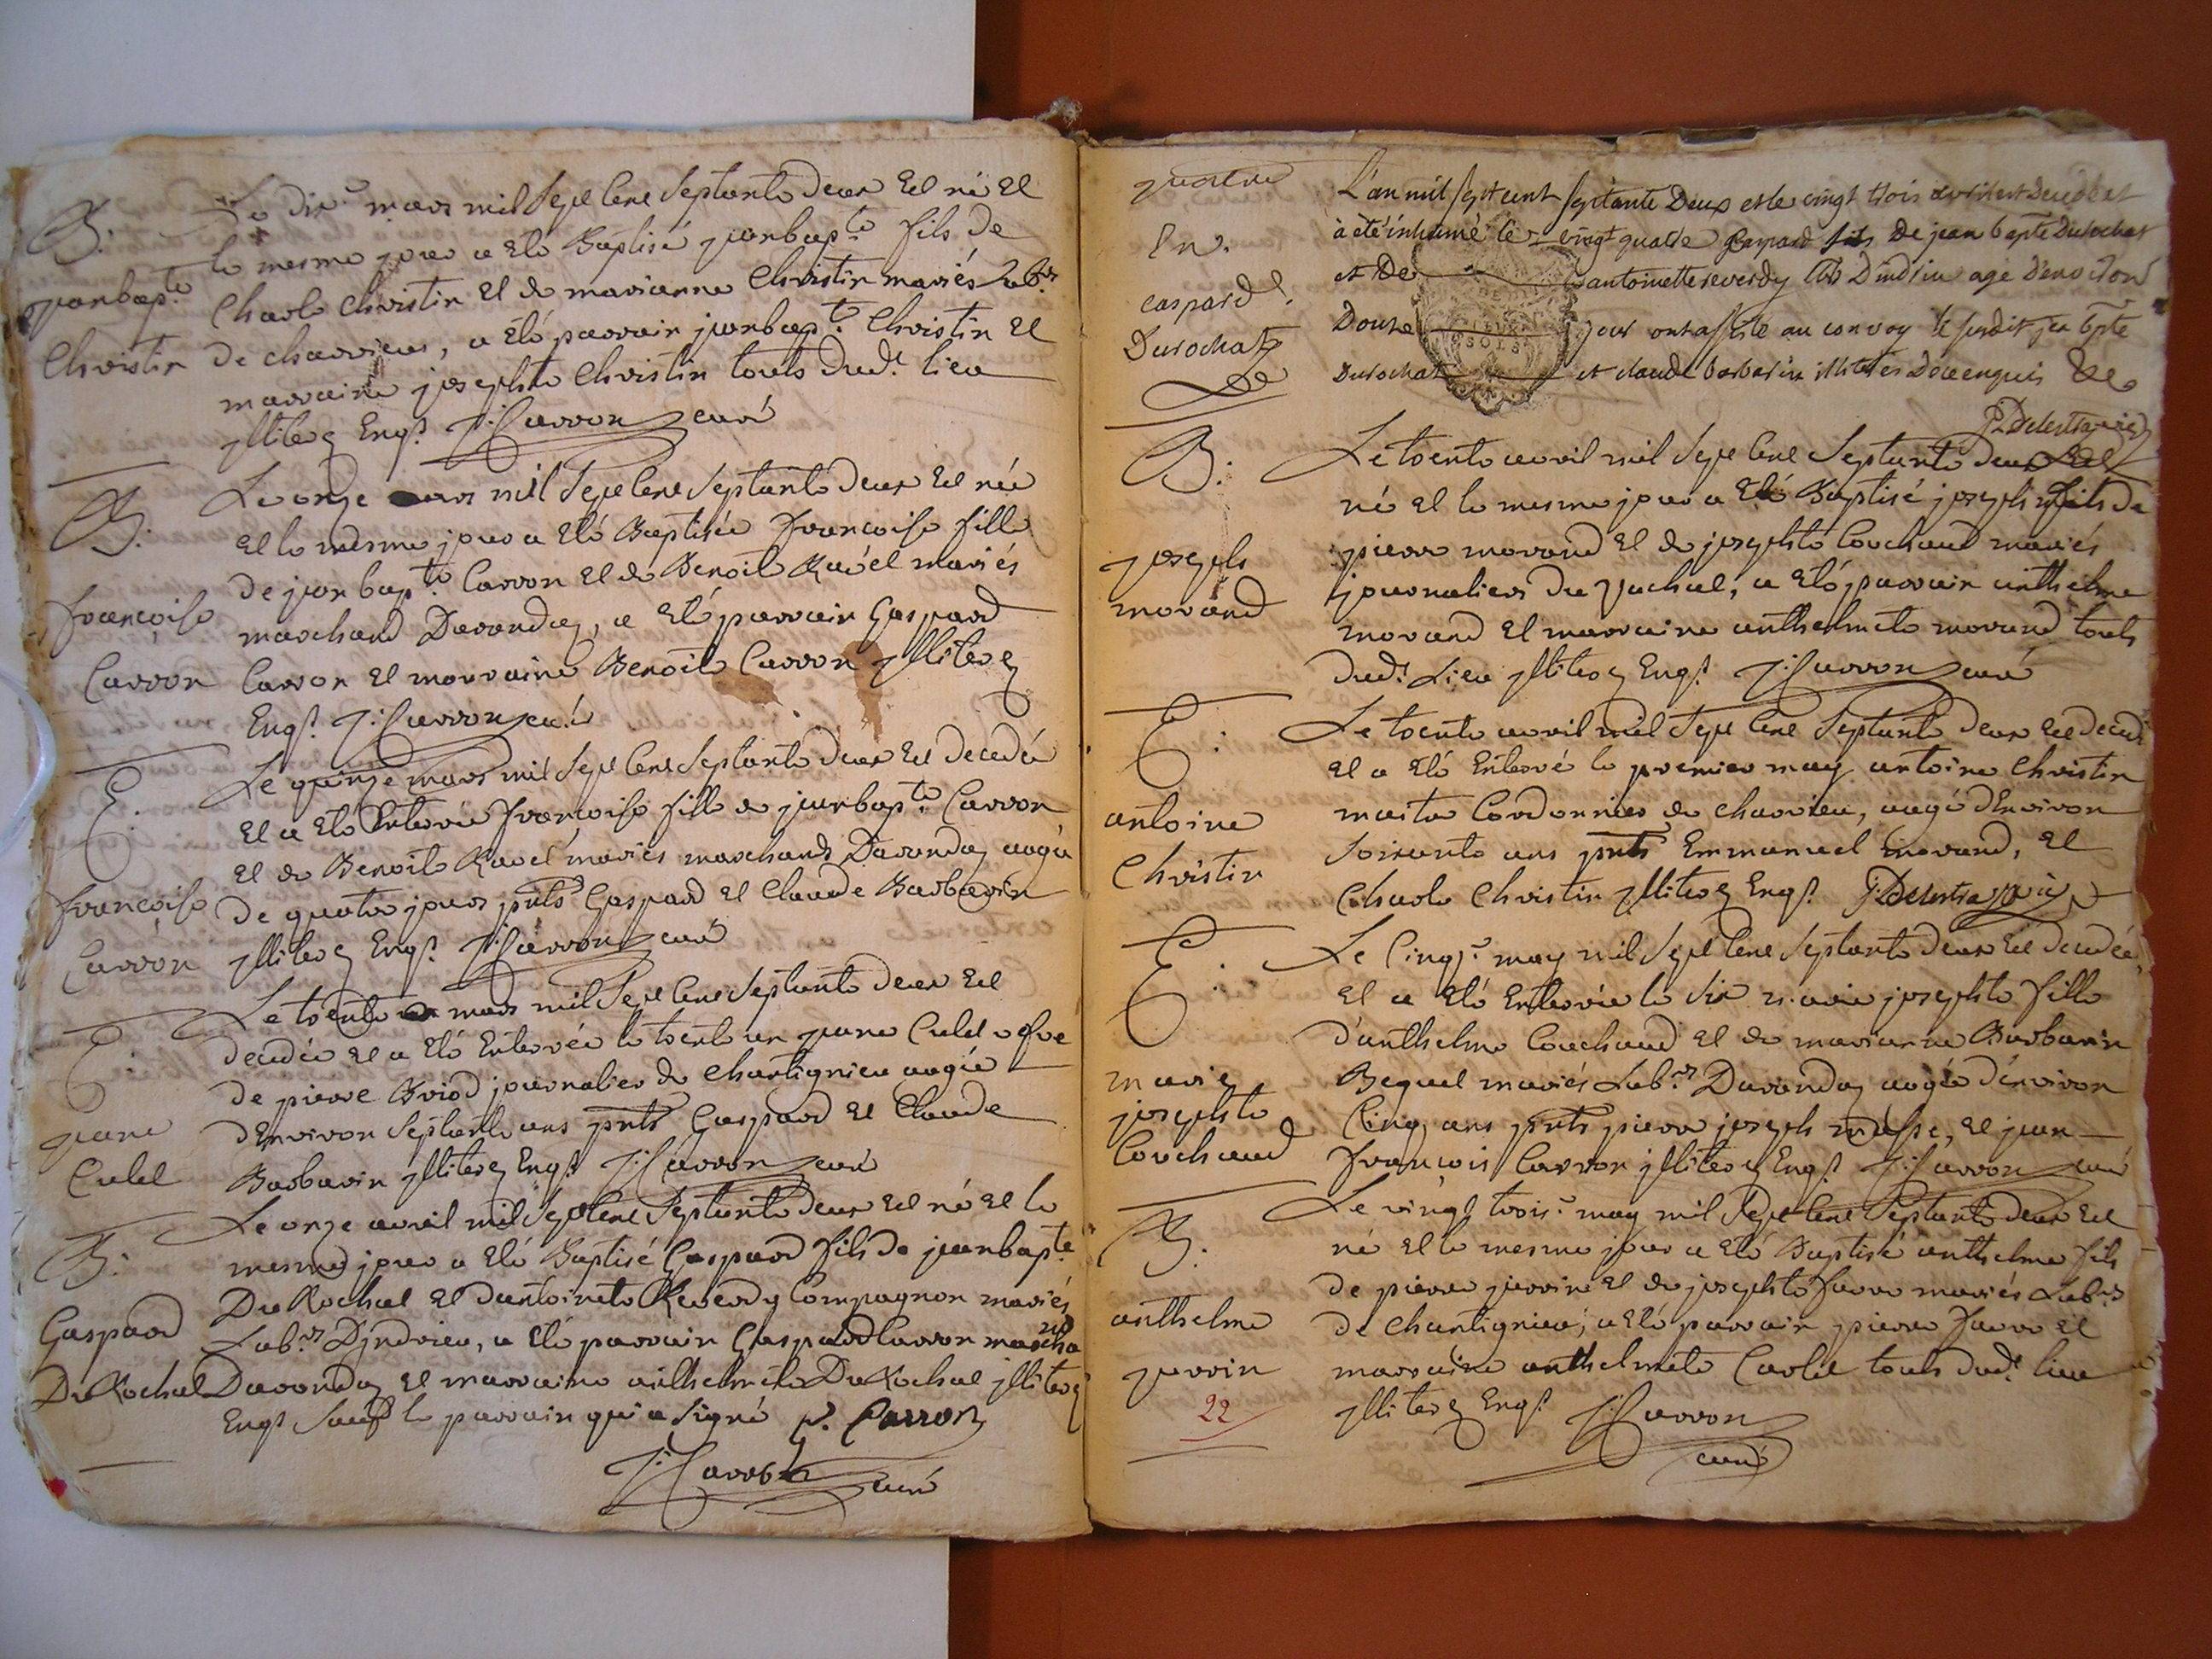 B.
janbap.te
Christin
Le dix.e mars mil Sept Cent Septante deux Est né Et
le mesme jour a Eté Baptisé janbap.te fils de
Charle Christin Et de marianne Christin mariés Lab.rs
de charvieu, a Eté parrain janbap.te Christin Et
marraine josephte Christin touts dud.t lieu
jlliteres Enq.s J: Carron curé
B.
francoise
Carron
Le onze mars mil Sept Cent Septante deux Est née
Et le mesme jour a Eté Baptisée francoise fille
de janbap.te Carron Et de Benoite Ravet mariés
marchand Daranday, a Eté parrain Gaspard
Carron Et marraine Benoite Carron jlliteres
Enq.s J: Carron curé
E.
francoise
Carron
Le quinze mars mil Sept Cent Septante deux Est decedée
Et a Eté Enterrée francoise fille de janbap.te Carron
Et de Benoite Ravet mariés marchands Daranday aagée
de quatre jours pnts Gaspard Et Claude Barbarin
jlliteres Enq.s J: Carron curé
E.
jane
Culet
Le trente mars mil Sept Cent Septante deux Est
decedée Et a Eté Enterrée le trente un jane Culet vefve
de pierre Briod journalier de Chantignieu aagée
dEnviron Septante ans pnts Gaspard Et Claude
Barbarin jlliteres Enq.s J: Carron curé
B.
Gaspard
DuRochat
Le onze avril mil Sept Cent Septante deux Est né Et le
mesme jour a Eté Baptisé Gaspard fils de janbap.te
DuRochat Et dantoinete Reverdy Compagnon mariés
Lab.rs Djndrieu, a Eté parrain Gaspard Carron marchand
Daranday Et marraine anthelmete DuRochat jlliteres
Enq.s Sauf le parrain qui a signé G. Carron
J: Carron curé
quatre
En.
Caspard
Durochat
L'an mil sept cent septante Deux et le vingt trois avril est Decédé et
à été inhumé le vingt quatre Gaspard fils De jean bapte Durochat
et De antoinette reverdy Lab. D'indrieu agé d'environ
Douze jour ont assisté au convoy le susdit jea bpte
Durochat et claude barbarin illiteres De ce enquis
Le trente avril mil Sept Cent Septante deux Est
né Et le mesme jour a Eté Baptisé joseph fils de
B.
joseph
morand
pierre morand Et de josephte Couchaud mariés
journaliers du Juchat, a Eté parrain anthelme
morand Et marraine anthelmete morand touts
dud.t Lieu jlliteres Enq.s J: Carron curé
E.
antoine
Christin
Le trente avril mil Sept Cent Septante deux Est decedé
Et a Eté Enterré le premier may antoine Christin
maitre Cordonnier de charvieu, aagé dEnviron
soixante ans pnts Emmanuel morand, Et
Charle Christin jlliteres Enq.s
E.
marie
josephte
Couchaud
Le Cinq.e may mil Sept Cent Septante deux Est decedée,
Et a Eté Enterrée le six marie josephte fille
d'anthelme Couchaud Et de marianne Barbarin
Bequet mariés Lab.rs Daranday aagée dénviron
Cinq ans pnts pierre joseph masse, Et jean
francois Carron jlliteres Enq.s J: Carron curé
B.
anthelme
jarrin
22
Le vingt trois.e may mil Sept Cent Septante deux Est
né Et le mesme jour a Eté Baptisé anthelme fils
de pierre jarrin Et de josephte favre mariés Lab.rs
de Chantignieu, a Eté parrain pierre favre Et
marraine anthelmete Carlet touts dud.t lieu
jlliteres Enq.s J: Carron
curé